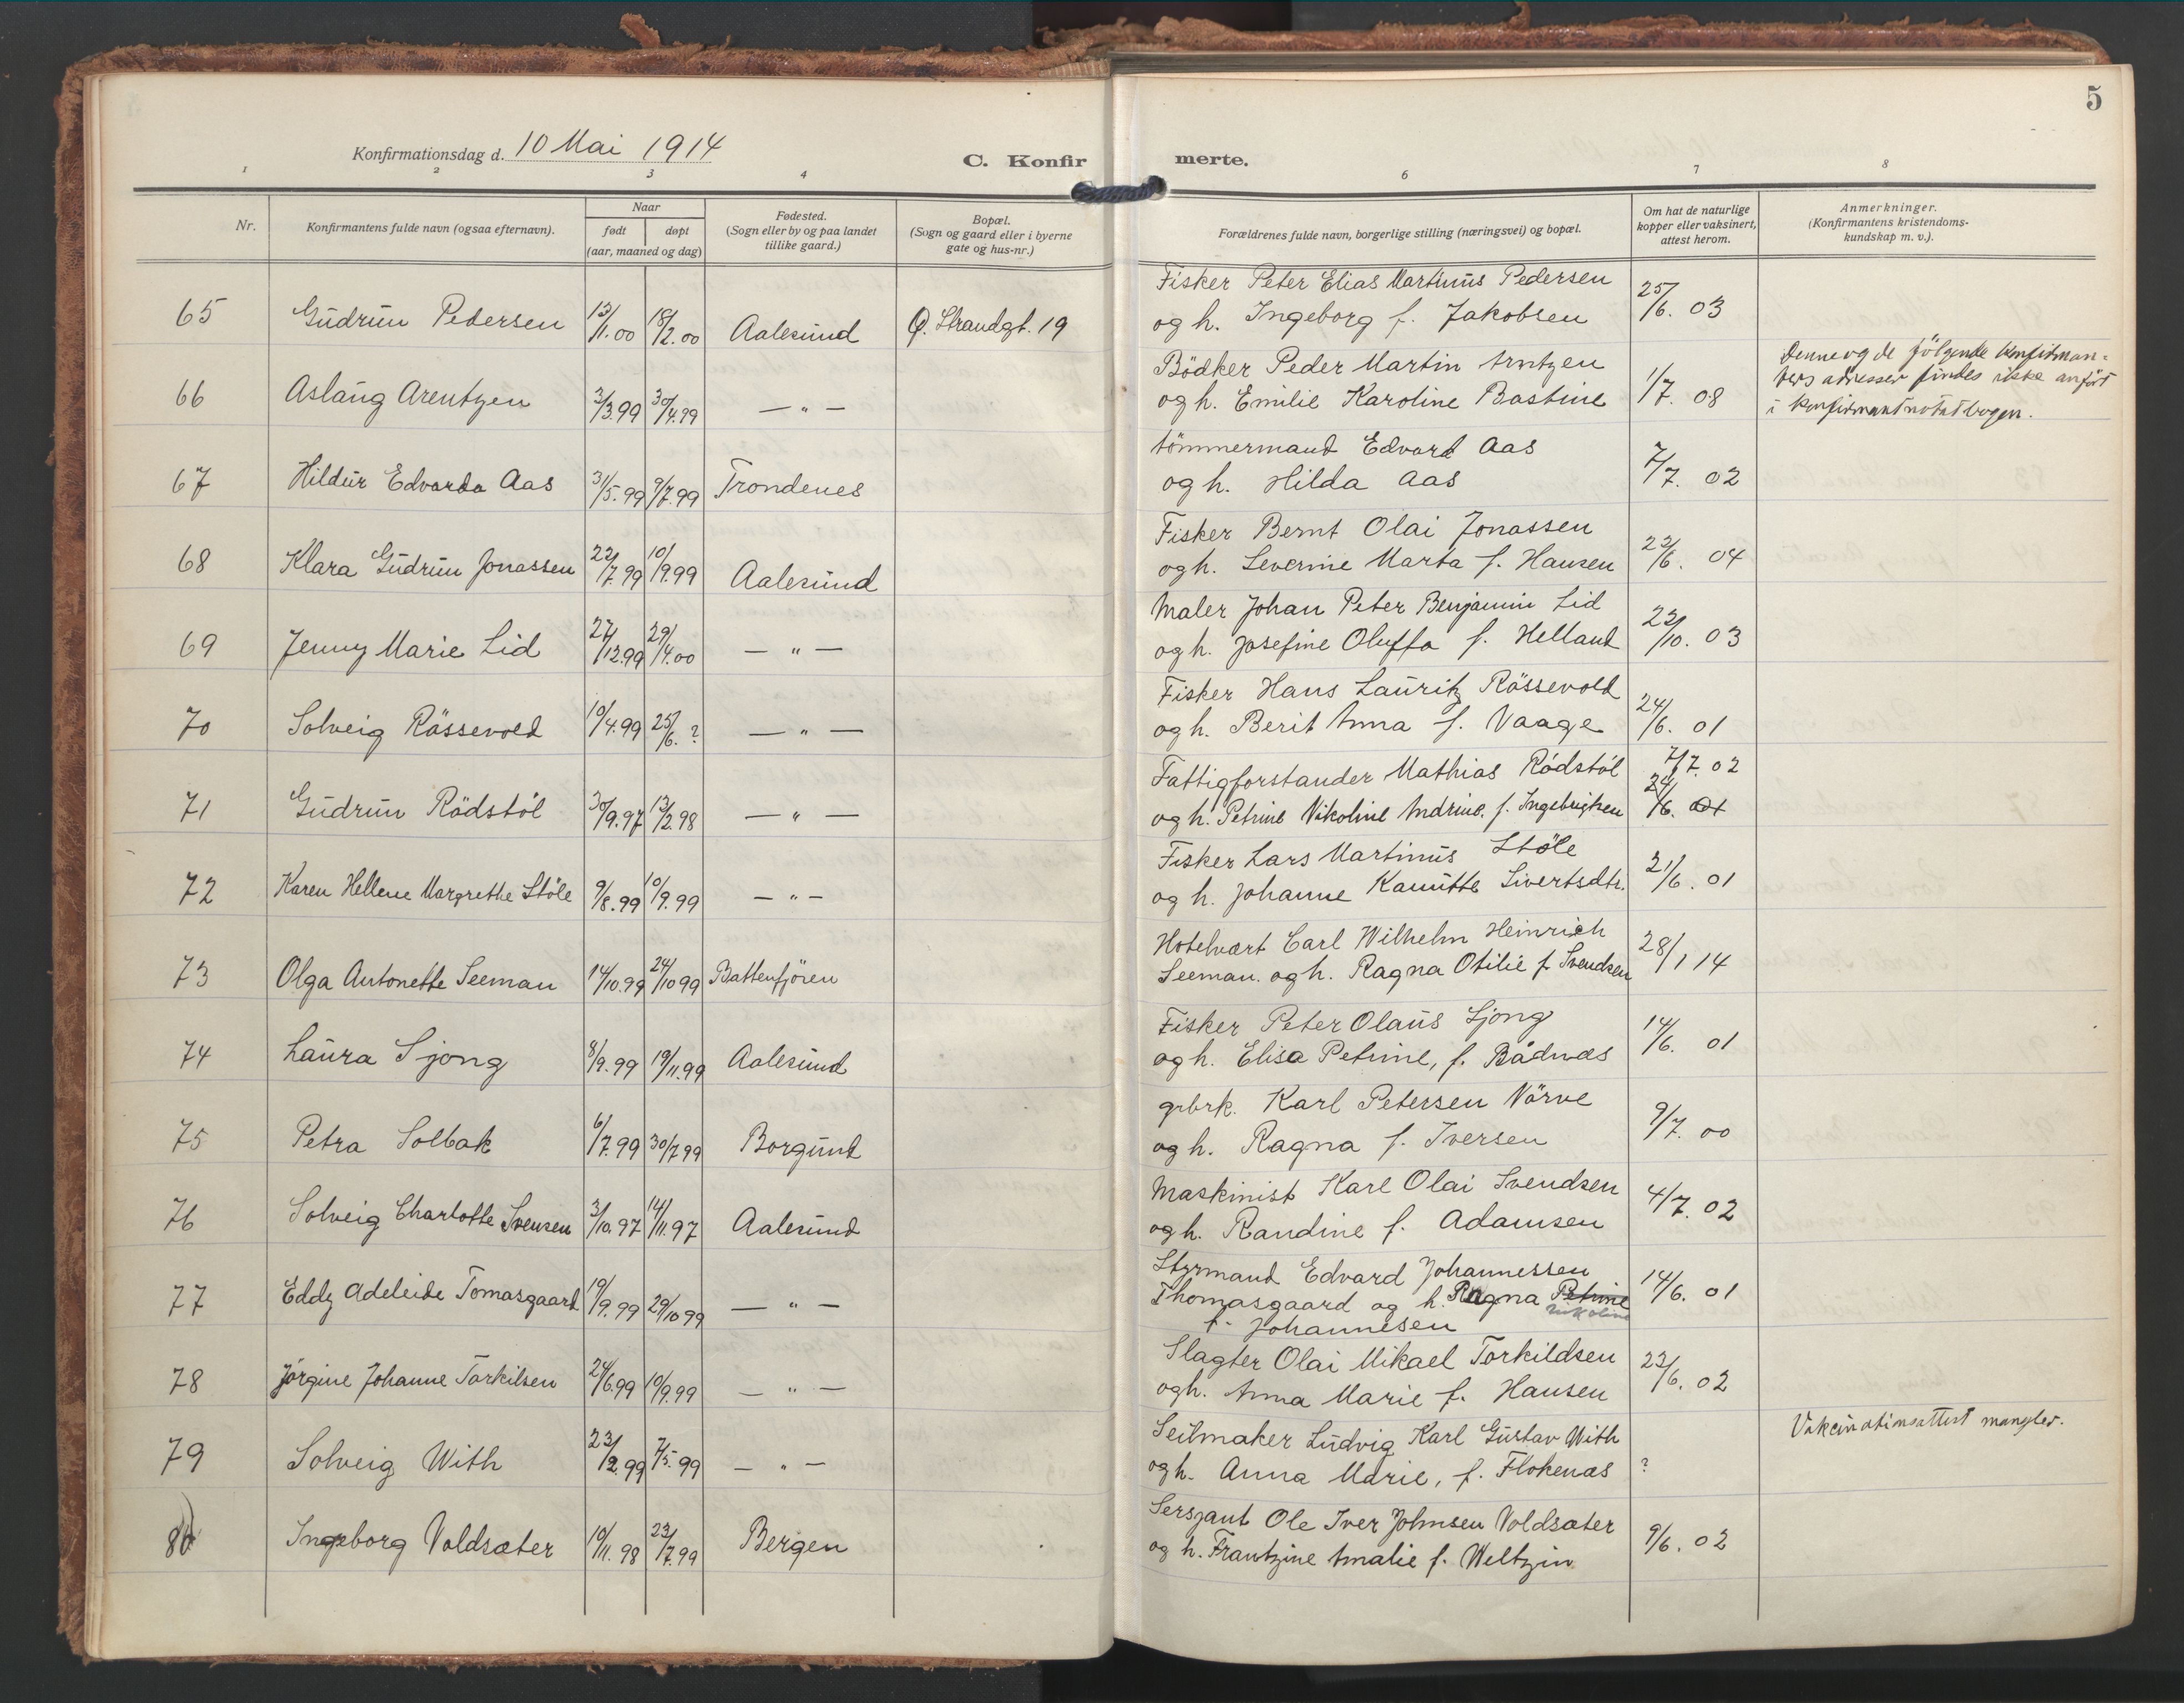 5
Konfirmationsdag d. 10 Mai 1914
C. Konfirmerte.
1 2 3 4 6 7 8
Nr. Konfirmantens fulde navn (ogsaa efternavn). Naar født døpt (aar, maaned og dag) Fødested. (Sogn eller by og paa landet tillike gaard.) Bopæl. (Sogn og gaard eller i byerne gate og hus-nr.) Forældrenes fulde navn, borgerlige stilling (næringsvei) og bopæl. Om hat de naturlige kopper eller vaksinert, attest herom. Anmerkninger. (Konfirmantens kristendomskundskap m. v.).
Fisker Peter Elias Martinus Pedersen
65 Gudrun Petersen 13/11.00 18/2.00 Aalesund Ø. Strandgt. 19 og h. Ingeborg f. Jakobsen 25/6. 03
Bödker Peder Martin Arntzen Denne og de följende konfirman-
66 Aslaug Arentzen 3/3.99 30/4.99 — " — og h. Emilie Karoline Bastine 1/7. 08 ters adresser findes ikke anfört
i konfirmantnotatbogen.
tömmermand Edvard Aas
67 Hildur Edvarda Aas 31/5.99 9/7.99 Trondenes og h. Hilda Aas 7/7. 02
Fisker Bernt Olai Jonassen
68 Klara Gudrun Jonassen 22/7.99 10/9.99 Aalesund og h. Severine Marta f. Hansen 22/6. 04
Maler Johan Peter Benjamin Lid
69 Jenny Marie Lid 27/12.99 29/4.00 — " — og h. Josefine Oluffa f. Helland 22/10. 03
Fisker Hans Lauritz Rössevold
70 Solveig Rössevold 10/4.99 25/6. ? — " — og h. Berit Anna f. Vaage 24/6. 01
Fattigforstander Mathias Rödstöl 7/7. 02
71 Gudrun Rödstöl 30/9.97 13/2.98 — " — og h. Petrine Nikoline Andrine. f. Ingebrigtsen 24/6. 01
Fisker Lars Martinus Stöle
72 Karen Hellene Margrethe Stöle 9/8.99 10/9.99 — " — og h. Johanne Kanutte Sivertsdtr. 21/6. 01
Hotelvært Carl Wilhelm Heinrich
73 Olga Antonette Seeman 14/10.99 24/10 99 Battenfjören Seeman. og h. Ragna Otilie f. Svendsen 28/1 14
Fisker Peter Olaus Sjong
74 Laura Sjong 8/9.99 19/11.99 Aalesund og h. Elisa Petrine, f. Bådnæs 14/6. 01
grbrk. Karl Petersen Nörve
75 Petra Solbak 6/7.99 30/7.99 Borgund og h. Ragna f. Iversen 9/7. 00
Maskinist Karl Olai Svendsen
76 Solveig Charlotte Svensen 3/10.97 14/11.97 Aalesund og h. Randine f. Adamsen 4/7. 02
Styrmand Edvard Johannessen
77 Eddy Adeleide Tomasgaard 19/9.99 29/10 99 — " — Thomasgaard og h. Ragna Petrine Nikoline 14/6. 01
f. Johannesen
Slagter Olai Mikael Torkildsen
78 Jörgine Johanne Torkilsen 24/6.99 10/9.99 — " — og h. Anna Marie f. Hansen 23/6. 02
Seilmaker Ludvig Karl Gustav With Vakcinationsattest mangler.
79 Solveig With 23/2.99 7/5.99 — " — og h. Anna Marie, f. Flokenæs ?
Sersjant Ole Iver Johnsen Voldsæter
80 Ingeborg Voldsæter 10/11.98 23/7.99 Bergen og h. Frantzine Amalie f. Weltzin 9/6. 02